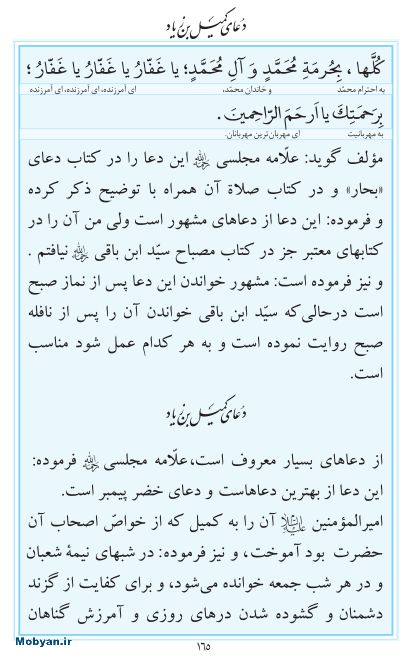 دعای کمیل بن زیاد
کُلَّها ، بِحُرمَةِ مُحَمَّدٍ وَ آلِ مُحَمَّدٍ؛ یا غَفّارُ یا غَفّارُ یا غَفّارُ ؛
به احترام محمّد و خاندان محمد، ای آمرزنده، ای آمرزنده، ای آمرزنده
بِرَحمَتِكَ یا اَرحَمَ الرّاحِمینَ .
به مهربانیت ای مهربان‌ترین مهربانان.
مؤلف گوید: علّامه مجلسی رحمه‌الله این دعا را در کتاب دعای
«بحار» و در کتاب صلاة آن همراه با توضیح ذکر کرده
و فرموده: این دعا از دعاهای مشهور است ولی من آن را در
کتابهای معتبر جز در کتاب مصباح سیّد ابن باقی رحمه‌الله نیافتم .
و نیز فرموده است: مشهور خواندن این دعا پس از نماز صبح
است درحالی‌که سیّد ابن باقی خواندن آن را پس از نافله
صبح روایت نموده است و به هر کدام عمل شود مناسب
است.
دعای کمیل بن زیاد
از دعاهای بسیار معروف است،علّامه مجلسی رحمه‌الله فرموده:
این دعا از بهترین دعاهاست و دعای خضر پیمبر است.
امیرالمؤمنین علیه‌السلام آن را به کمیل که از خواصّ اصحاب آن
حضرت بود آموخت، و نیز فرموده: در شبهای نیمهٔ شعبان
و در هر شب جمعه خوانده می‌شود، و برای کفایت از گزند
دشمنان و گشوده شدن درهای روزی و آمرزش گناهان
Mobyan.ir
۱۶۵